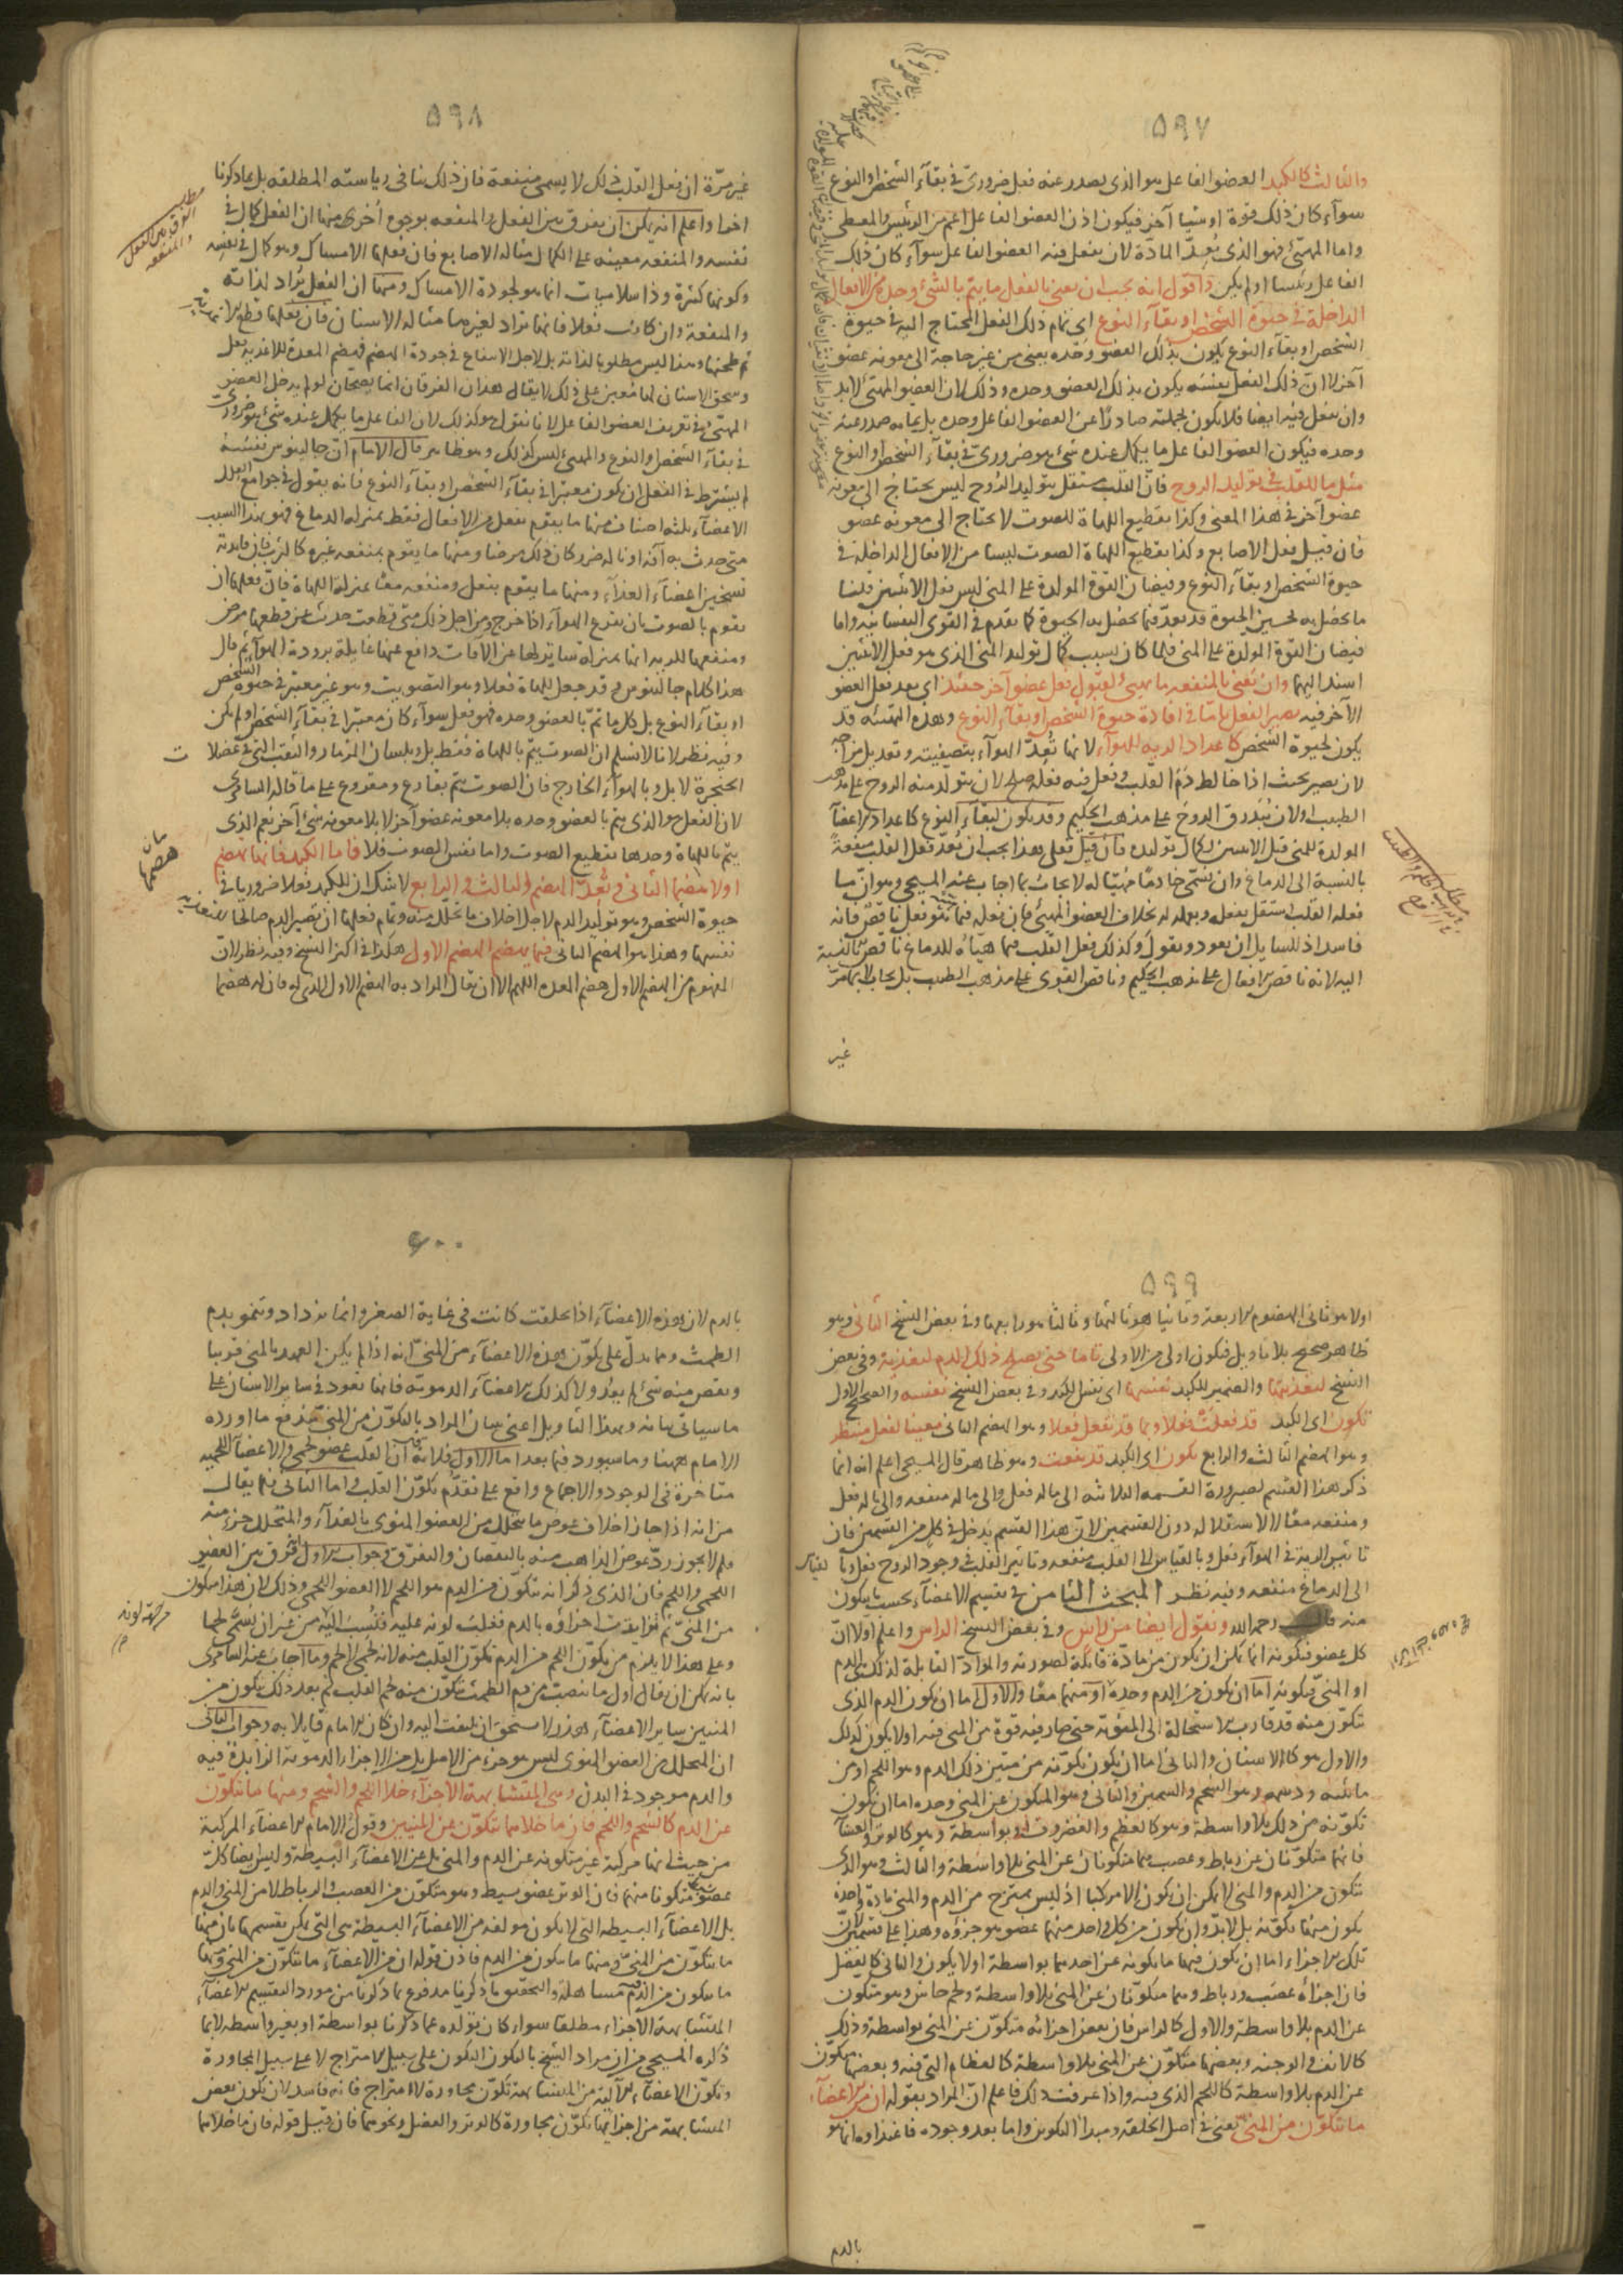 ٥٩٧
والثالث كالكبد العضو الفاعل هو الذى يصدر عنه فعل ضرورىّ فى بقآء الشخص او النوع
سوآء كان ذلك قوة او شيا آخر فيكون اذن العضو الفاعل اعم من الرئيس والمعطى
واما المهيّئ فهو الذى يُعِدّ المادّة لان يفعل فيه العضو الفاعل سوآء كان ذلك
الفاعل رئيسا او لم يكن واقول انه يجب ان نعنى بالفعل ما يتم بالشئ وحده من الافعال
الداخلة فى حيوة الشخص او بقآء النوع اى تمام ذلك الفعل المحتاج اليه فى حيوة
الشخص او بقآء النوع يكون بذلك العضو وحده يعنى من غير حاجة الى معونه عضو
آخر لا ان ذلك الفعل بنفسه يكون بذلك العضو وحده وذلك لان العضو المهيّئ لابد
وان يفعل فيه ايضا فلا يكون بجملته صادرًا عن العضو الفاعل وحده بل تمامه صدر عنه
وحده فيكون العضو الفاعل ما يكمل عنده شئ هو ضرورىّ فى بقآء الشخص او النوع
مثل ما للقلب فى توليد الروح فانّ القلب مستقل بتوليد الرّوح ليس يحتاج الى معونه
عضو آخر فى هذا المعنى وكذا تقطيع اللهاة للصوت لا يحتاج الى معونه عضو
فان قيل فعل الاصابع وكذا تقطيع اللهاة الصوت ليسا من الافعال الداخلة فى
حيوة الشخص او بقآء النوع وفيضان القوة المولدة على المنى ليس فعل الانثيين قلنا
ما يحصل به تحسين الحيوة قد يعدّ فيما يحصل به الحيوة كما تقدم فى القوى النفسانيه واما
فيضان القوة المولدة على المنى فلما كان بسبب كمال توليد المنى الذى هو فعل الانثيين
اسند اليهما وان نعنى بالمنفعه ما يهيئ لقبول فعل عضو آخر حينئذ اى بعد فعل العضو
الآخر فيه يصير الفعل تامّا فى افادة حيوة الشخص او بقآء النوع وهذه التهيئه قد
يكون لحيوة الشخص كاعداد الريه للهوآء لانها تُعِدّ الهوآء بتصفيته وتعديل مزاجه
لان يصير بحيث اذا خالط دَمَ القلب وفعل فيه فعله صلح لان يتولّد منه الروح على مذهب
الطبيب او لان يُدَرِّق الروح على مذهب الحكيم وقد يكون لبقآء النوع كاعداد الاعضآء
المولدة للمنى قبل الانثيين لكمال توليده فان قيل فعلى هذا يجب ان يُعدّ فعل القلب منفعةً
بالنسبة الى الدماغ وان يسمّى خادمًا مهيّئا له لا يجاب بما اجاب عنه المسيحى وهو انّ ما
فعله القلب استقل بفعله وبعمله له بخلاف العضو المهيّئ فان فعله فيما هيّؤه فعل ناقصٌ فانه
فاسد اذ للسايل ان يعود ويقول وكذلك فعل القلب فيما هيّاه للدماغ ناقصٌ بالنسبة
اليه لانه ناقص الافعال على مذهب الحكيم وناقص القوى على مذهب الطبيب بل يجاب بما مرّ
غير
٥٩٨
غير مرّة ان فعل القلب ذلك لا يسمى منفعة فان ذلك ينافى رياسته المطلقه بل بما ذكرنا
اخرا واعلم انه يمكن ان يفرق بين الفعل والمنفعه بوجوه اُخرى منها ان الفعل كمال فى
نفسه والمنفعه معينه على الكمال مثاله الاصابع فان فعلها الامساك وهو كمال فى نفسه
وكونها كثيرة وذا سلاميات انما هو لجودة الامساك ومنها ان الفعل يُراد لذاته
والمنفعة وان كانت فعلا فانها تراد لغيرها مثاله الاسنان فان فعلها قطع
ثم طحنها وهذا ليس مطلوبا لذاته بل لاجل الانتفاع فى جودة الهضم فهضم المعدة للاغذيه فعل
وسحق الاسنان لها مُعين على ذلك لا يقال هذان الفرقان انما يصحّان لو لم يدخل العضو
المهيّئ فى تعريف العضو الفاعل لانا نقول هو كذلك لان الفاعل ما يكمل عنده شئ هو ضرورى
فى بقآء الشخص والنوع والمهيئ ليس كذلك وهو ظاهر قال الامام انّ جالينوس نفسه
لم يشترط فى الفعل ان يكون معتبرا فى بقآء الشخص او بقآء النوع فانه يقول فى جوامع العلل
الاعضآء ثلثه اصناف منها ما يقوم بفعل من الافعال فقط بمنزله الدماغ فهو بهذا السبب
متى حدث به آفه او ناله ضرر كان ذلك مرضا ومنها ما يقوم بمنفعه غيره كالثرب فان فايدته
تسخين اعضآء الغذآء ومنها ما يقوم بفعل ومنفعه معًا بمنزلة اللهاة فانّ فعلها ان
تقوم بالصوت بان يقرع الهوآء اذا خرج ومن اجل ذلك متى قطعت حدث عن قطعها مرض
ومنفعتها للريه انها بمنزلة ساتر لها عن الآفات دافع عنها غايلة برودة الهوآء ثم قال
هذا كلام جالينوس فقد جعل للهاة فعلا وهو التصويت وهو غير معتبر فى حيوة الشخص
او بقآء النوع بل كل ما تمّ بالعضو وحده فهو فعل سوآء كان معتبرا فى بقآء الشخص او لم يكن
وفيه نظر لانا لا نسلم ان الصوت يتم باللهاة فقط بل وبلسان المزمار والثقب التى فى عضلات
الحنجرة لا بل وبالهوآء الخارج فان الصوت يتم بقارع ومقروع على ما قاله السامرى
لان الفعل هو الذى يتم بالعضو وحده بلا معونه عضو آخر لا بلا معونه شئ آخر نعم الذى
يتم باللهاة وحدها تقطيع الصوت واما نفس الصوت فلا فاما الكبد فانها تهضم
اولا هضمها الثانى وتُعِدّ الهضم والثالث والرابع لا شك ان للكبد فعلا ضروريا فى
حيوة الشخص وهو توليد الدم لاجل اخلاف ما تحلّل منه وتمام فعلها ان يصير الدم صالحا لتغذيه
نفسها وهذا هو الهضم الثانى فيما يهضم الهضم الاول هكذا فى اكثر النسخ وفيه نظر لانّ
المفهوم من الهضم الاول هضم المعده اللهم الا ان يقال المراد به الهضم الاول الذى له فان له هضما
مطلب
الفرق بين الفعل
والمنفعه
٥٩٩
اولا هو ثانى الهضوم الاربعة وثانيا هو ثالثها وثالثا هو رابعها وفى بعض النسخ الثانى وهو
ظاهر صحيح بلا تاويل فيكون اولى من الاولى تاما حتى يصلح ذلك الدم لتغذيته وفى بعض
النسخ لتغذيتها والضمير للكبد نفسها اى نفس الكبد وفى بعض النسخ نفسه والصحيح الاول
تكون اى الكبد قد فعلت فعلا وبما قد تفعل فعلا وهو الهضم الثانى معينا لفعل منتظر
وهو الهضم الثالث والرابع تكون اى الكبد قد نفعت وهو ظاهر قال المسيحى اعلم انه انما
ذكر هذا القسم لضرورة القسمه الثلاثه الى ما له فعل والى ما له منفعه والى ما له فعل
ومنفعه معًا لا لاستقلاله دون القسمين لانّ هذا القسم يدخل فى كل من القسمين فان
تاثير الريه فى الهوآء فعل وبالقياس الى القلب منفعه وتاثير القلب فى وجود الروح فعل وبالقياس
الى الدماغ منفعه وفيه نظر المبحث الثامن فى تقسيم الاعضآء بحسب ما يتكون
منه قال رحمه الله ونقول ايضا من راس وفى بعض النسخ الراس واعلم اولا انّ
كل عضو فتكونه انما يمكن ان يكون من مادّة قابلة لصورته والمواد القابلة لذلك هى الدم
او المنى فتكونه اما ان يكون من الدم وحده او منهما معًا والاول اما ان يكون الدم الذى
تكوّن منه قد قارب الاستحالة الى المنويّة حتى صار فيه قوة من المنى فيه او لا يكون كذلك
والاول هو كالاسنان والثانى اما ان يكون تكوّنه من متين ذلك الدم وهو اللحم او من
مائيته ودسمه وهو الشحم والسمين والثانى وهو المتكون عن المنى وحده اما ان يكون
تكوّنه من ذلك بلا واسطة وهو كالعظم والغضروف او بواسطة وهو كالوتر والغشآء
فانهما متكوّنان عن رباط وعصب هما متكونان عن المنى بلا واسطة والثالث وهو الذى
تكون من الدم والمنى لا يمكن ان يكون الا مركبا اذ ليس يمتزج من الدم والمنى مادّة واحدة
يكون منهما تكوّنه بل لابدّ وان يكون من كل واحد منهما عضو هو جزؤه وهذا على قسمين لانّ
تلك الاجزاء اما ان يكون فيها ما يكونه عن احدهما بواسطة او لا يكون والثانى كالعضل
فان اجزاءَه عصب ورباط وهما متكوّنان عن المنى بلا واسطة ولحم حاس وهو متكون
عن الدم بلا واسطة والاول كالراس فان بعض اجزائه متكوّن عن المنى بواسطة وذلك
كالانف والوجنه وبعضها متكوّن عن المنى بلا واسطة كالعظام التى فيه وبعضها متكوّن
عن الدم بلا واسطة كاللحم الذى فيه واذا عرفت ذلك فاعلم انّ المراد بقوله ان من الاعضآء
ما يتكوّن من المنى يعنى فى اصل الخلقه ومبدا التكوين واما بعد وجوده فاغتذاؤه انما هو
بالدم
٦٠٠
بالدم لان هذه الاعضآء اذا خلقت كانت فى غاية الصغر وانما تزداد وتنمو بدم
الطمث ومما يدلّ على تكوّن هذه الاعضآء من المنىّ انه اذا لم يكن العهد بالمنى قريبا
ونقص منه شئ لم يعُد ولا كذلك الاعضآء الدمويّه فانها تعود فى ساير الاسنان على
ما سياتى بيانه وبهذا التاويل اعنى بيان المراد بالتكوّن من المنىّ يندفع ما اورده
الامام ههنا وما سيورد فيما بعد اما الاول فلانه قال ان القلب عضو لحمى والاعضآء اللحميه
متاخرة فى الوجود والاجماع واقع على تقدّم تكوّن القلب واما الثانى فلما يقال
من انه اذا جاز اخلاف عوض ما يتحلل من العضو المنوى بالغذآء والمتحلل جزء منه
فلم لا يجوز ردّ عوض الذاهب منه بالنقصان والتفرّق وجواب الاول الفرق بين العضو
اللحمى واللحم فان الذى ذكر انه يتكوّن من الدم هو اللحم لا العضو اللحمى وذلك لان هذا متكون
من المنىّ ثم تزايدت اجزاؤه بالدم فغلب لونه عليه فنُسِبَ اليه من غير ان يُسَمّى لحما
وعلى هذا لا يلزم من تكوّن اللحم من الدم تكوّن القلب منه لانه لحمى لا لحم وما اجاب عنه السامرى
بانه يمكن ان يقال اول ما ينصب من دم الطمث يتكوّن منه لحم القلب ثم بعد ذلك يتكون من
المنيين ساير الاعضآء هذر لا يستحق ان يلتفت اليه وان كان الامام قايلا به وجواب الثانى
ان المتحلل من العضو المنوى ليس هو جزء من الاصل بل من الاجزاء الدمويّة الزايدة فيه
والدم موجود فى البدن وهى المتشابهة الاجزآء خلا اللحم والشحم ومنها ما يتكوّن
عن الدم كالشحم واللحم فان ما خلا هما يتكوّن عن المنيين وقول الامام الاعضآء المركبة
من حيث انها مركبة غير متكونه عن الدم والمنى بل عن الاعضآء البسيطة وليس ايضا كل
عضو بسيط متكونا منهما فان الوتر عضو بسيط وهو متكوّن من العصب والرباط لا من المنى والدم
بل الاعضآء البسيطه التى لا يكون مولفه من الاعضآء البسيطة هى التى يمكن تقسيمها بان منها
ما يتكوّن من المنىّ ومنها ما يتكون من الدم فاذن قوله ان من الاعضآء ما يتكوّن من المنى ومنها
ما يتكون من الدم مساهله والتحقيق ما ذكرنا مدفوع بما ذكرنا من مورد التقسيم الاعضآء
المتشابهة الاجزاء مطلقا سواء كان تولّده عما ذكرنا بواسطة او بغير واسطه لا بما
ذكره المسيحى من ان مراد الشيخ بالتكون التكون على سبيل الامتزاج لا على سبيل المجاورة
وتكوّن الاعضآء الآلية من المتشابهة تكوّن مجاورة لا امتزاج فانه فاسد لان تكوّن بعض
المتشابهة من اجزائها تكوّن مجاورة كالوتر والعضل ونحوهما فان قيل قوله فان ما خلا هما